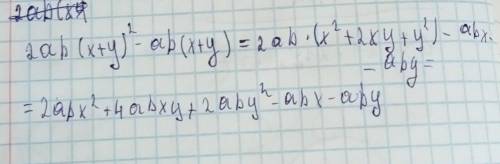 2ab(x+y)² - ab(x+y) = 2ab·(x²+2xy+y²) - abx-
- aby =
= 2abx² + 4abxy + 2aby² - abx - aby